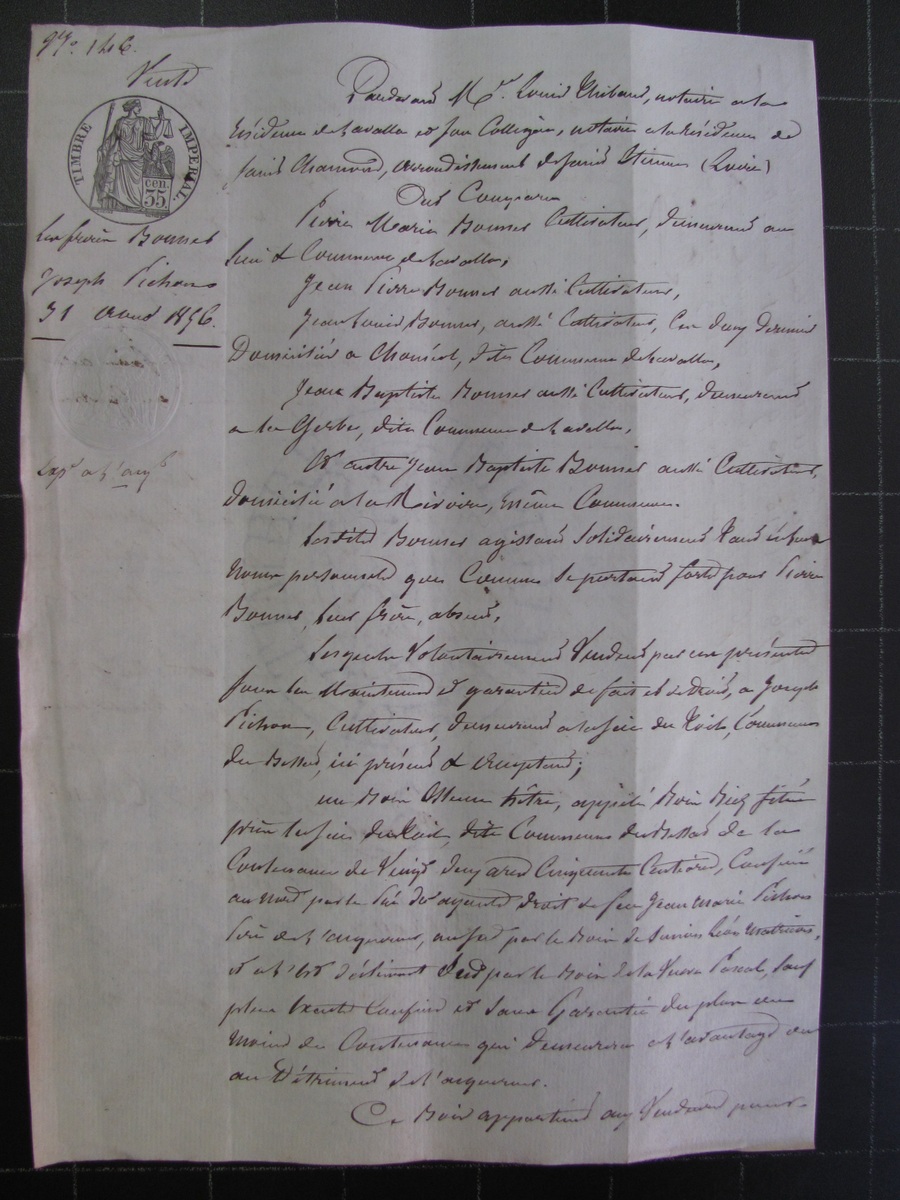 Vente
TIMBRE IMPÉRIAL
35 cen.
Les frères Bonnet
Joseph Pichon
31 1856.
Pardevant Me. Louis Thibaud, notaire a la
résidence de Lavalla et son Collègue, notaire a la résidence de
Saint Chamond, arrondissement de Saint Etienne (Loire)
Ont Comparu
Pierre Marie Bonnet Cultivateur, demeurant au
lieu & Commune de Lavalla,
Jean Pierre Bonnet aussi Cultivateur,
Jean Louis Bonnet, aussi Cultivateur, Ces deux derniers
Domiciliés a , dite Commune de Lavalla,
Jean Baptiste Bonnet aussi Cultivateur, demeurant
a la Gerbe, dite Commune de Lavalla,
Et autre Jean Baptiste Bonnet aussi Cultivateur,
domicilié a la Rivoire, même Commune.
Lesdits Bonnet agissant Solidairement tant en leurs
noms personnels que Comme Se portant forts pour Pierre
Bonnet, leur frère, absent,
Lesquels Volontairement Vendent par ces présentes
sous les Maintenues et garanties de fait et de droit, a Joseph
Pichon, Cultivateur, demeurant a la du Toil, Commune
du Bessat, ici présent & acceptant;
un Bois Essence hêtre, appelé Bois situé
près du Toil, dite Commune du Bessat de la
Contenance de Vingt deux ares Cinquante Centiares, Confiné
au nord par le Pré des ayants droit de feu Jean Marie Pichon
père de l'acquéreur, au sud par le Bois de
et a l'Est par le Bois de la Veuve Pascal, Sauf
plus Exacts Confins et Sans Garantie du plus ou
Moins de Contenance qui demeurera a l'avantage ou
au Détriment de l'acquéreur.
Ce Bois appartient aux Vendeurs pour